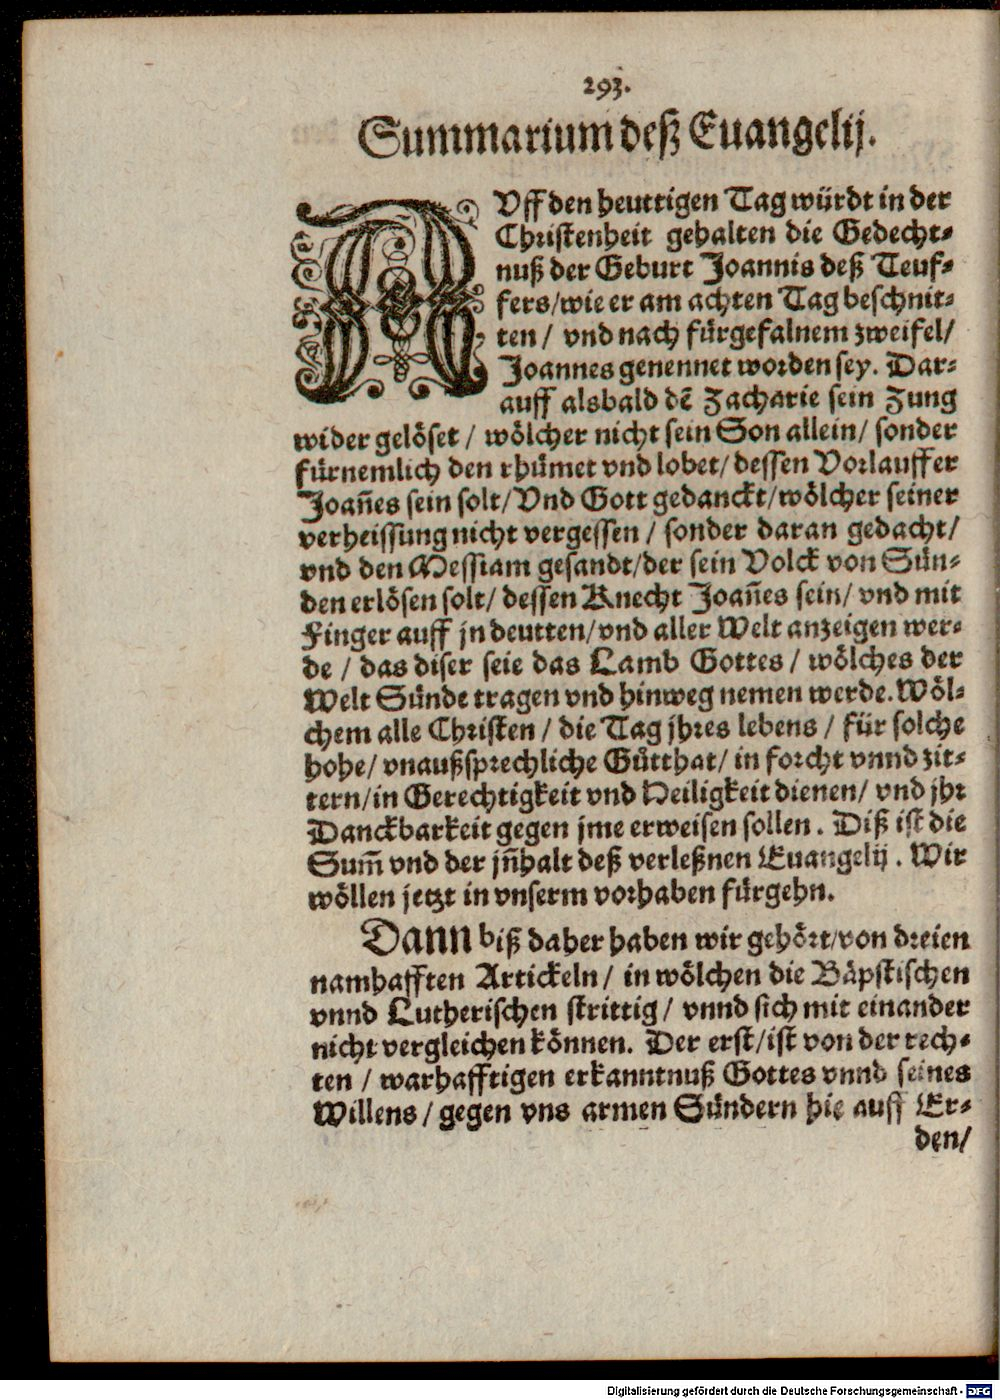 293.
Summarium deß Euangelij.
AVff den heuttigen Tag würdt in der
Christenheit gehalten die Gedecht-
nuß der Geburt Joannis deß Teuf-
fers/wie er am achten Tag beschnit-
ten / vnd nach fürgefalnem zweifel/
Joannes genennet worden sey. Dar-
auff alsbald dẽ Zacharie sein Zung
wider gelöset / wölcher nicht sein Son allein/ sonder
fürnemlich den rhümet vnd lobet/ dessen Vorlauffer
Joañes sein solt/ Vnd Gott gedanckt/wölcher seiner
verheissung nicht vergessen / sonder daran gedacht/
vnd den Messiam gesandt/der sein Volck von Sün-
den erlösen solt/ dessen Knecht Joañes sein/ vnd mit
Finger auff jn deutten/vnd aller Welt anzeigen wer-
de / das diser seie das Lamb Gottes / wölches der
Welt Sünde tragen vnd hinweg nemen werde. Wöl-
chem alle Christen / die Tag jhres lebens / für solche
hohe/ vnaußsprechliche Gütthat/ in forcht vnnd zit-
tern/in Gerechtigkeit vnd Heiligkeit dienen/ vnd jhr
Danckbarkeit gegen jme erweisen sollen. Diß ist die
Sum̃ vnd der jñhalt deß verleßnen Euangelij. Wir
wöllen jetzt in vnserm vorhaben fürgehn.
Dann biß daher haben wir gehört/von dreien
namhafften Artickeln/ in wölchen die Bäpstischen
vnnd Lutherischen strittig / vnnd sich mit einander
nicht vergleichen können. Der erst/ist von der rech-
ten / warhafftigen erkanntnuß Gottes vnnd seines
Willens / gegen vns armen Sündern hie auff Er-
den/
Digitalisierung gefördert durch die Deutsche Forschungsgemeinschaft - DFG